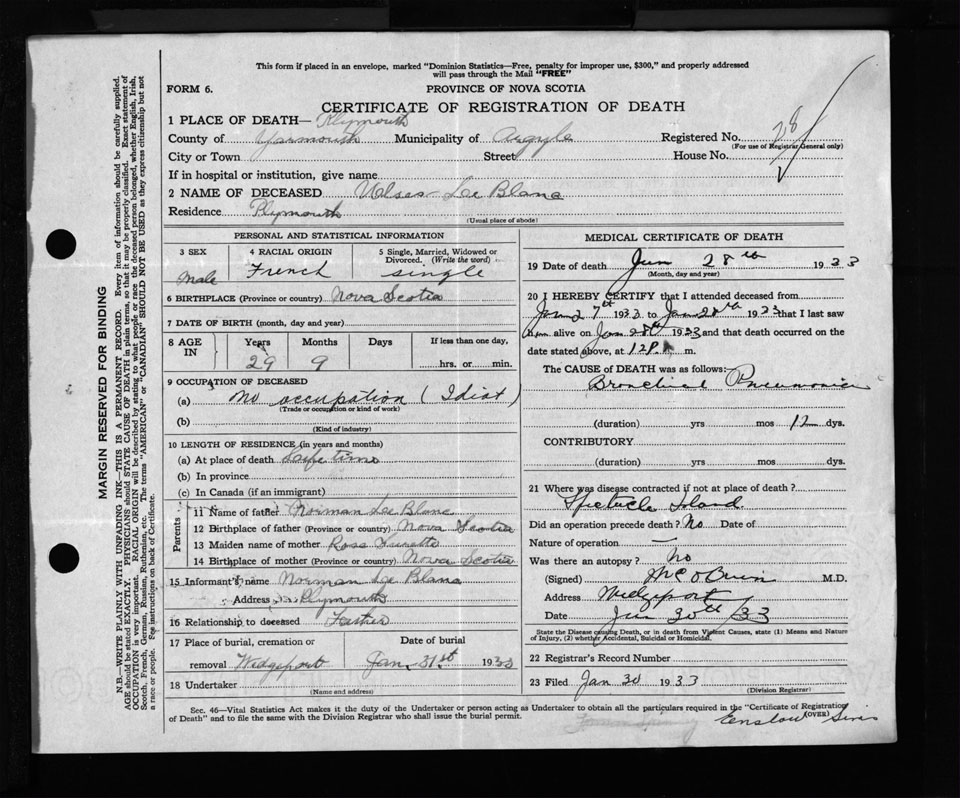 This form if placed in an envelope, marked "Dominion Statistics—Free, penalty for improper use, $300," and properly addressed
will pass through the Mail "FREE"
FORM 6.
PROVINCE OF NOVA SCOTIA
CERTIFICATE OF REGISTRATION OF DEATH
1 PLACE OF DEATH— Plymouth
County of Yarmouth Municipality of Argyle Registered No. 28
(For use of Registrar General only)
City or Town Street House No.
If in hospital or institution, give name
2 NAME OF DECEASED Ulses Le Blanc
Residence Plymouth
(Usual place of abode)
PERSONAL AND STATISTICAL INFORMATION
3 SEX 4 RACIAL ORIGIN 5 Single, Married, Widowed or
Divorced. (Write the word)
Male French single
6 BIRTHPLACE (Province or country) Nova Scotia
7 DATE OF BIRTH (month, day and year)
8 AGE IN Years Months Days If less than one day,
29 9 hrs. or min.
9 OCCUPATION OF DECEASED
(a) no occupation (Idiot)
(Trade or occupation or kind of work)
(b)
(Kind of industry)
10 LENGTH OF RESIDENCE (in years and months)
(a) At place of death Life time
(b) In province
(c) In Canada (if an immigrant)
Parents
11 Name of father Norman Le Blanc
12 Birthplace of father (Province or country) Nova Scotia
13 Maiden name of mother Rose
14 Birthplace of mother (Province or country) Nova Scotia
15 Informant's name Norman Le Blanc
Address Plymouth
16 Relationship to deceased Father
17 Place of burial, cremation or Date of burial
removal Wedgeport Jan. 31st 1933
18 Undertaker
(Name and address)
MEDICAL CERTIFICATE OF DEATH
19 Date of death Jan 28th 1933
(Month, day and year)
20 I HEREBY CERTIFY that I attended deceased from
Jan 27th 1933 to Jan 28th 1933 that I last saw
him alive on Jan 28th 1933 and that death occurred on
date stated above, at 12 P. m.
The CAUSE OF DEATH was as follows:
Bronchial Pneumonia
(duration) yrs mos 12 dys.
CONTRIBUTORY
(duration) yrs mos dys.
21 Where was disease contracted if not at place of death?
Spectacle Island
Did an operation precede death? No Date of
Nature of operation —
Was there an autopsy? No
(Signed) M.D.
Address Wedgeport
Date Jan 30th /33
State the Disease causing Death, or in death from Violent Causes, state (1) Means and Nature
of Injury, (2) whether Accidental, Suicidal or Homicidal.
22 Registrar's Record Number
23 Filed Jan 30 1933
(Division Registrar)
Sec. 46—Vital Statistics Act makes it the duty of the Undertaker or person acting as Undertaker to obtain all the particulars required in the "Certificate of Registration
of Death" and to file the same with the Division Registrar who shall issue the burial permit.
(OVER)
MARGIN RESERVED FOR BINDING
N.B.—WRITE PLAINLY WITH UNFADING INK—THIS IS A PERMANENT RECORD. Every item of information should be carefully supplied.
AGE should be stated EXACTLY. PHYSICIANS should STATE CAUSE OF DEATH in plain terms, so that it may be properly classified. Exact statement of
OCCUPATION is very important. RACIAL ORIGIN will be described by stating to what people or race the deceased person belonged, whether English, Irish,
Scotch, French, German, Russian, Ruthenian, etc. The terms "AMERICAN" or "CANADIAN" SHOULD NOT BE USED as they express citizenship but not
a race or people. See instructions on back of Certificate.